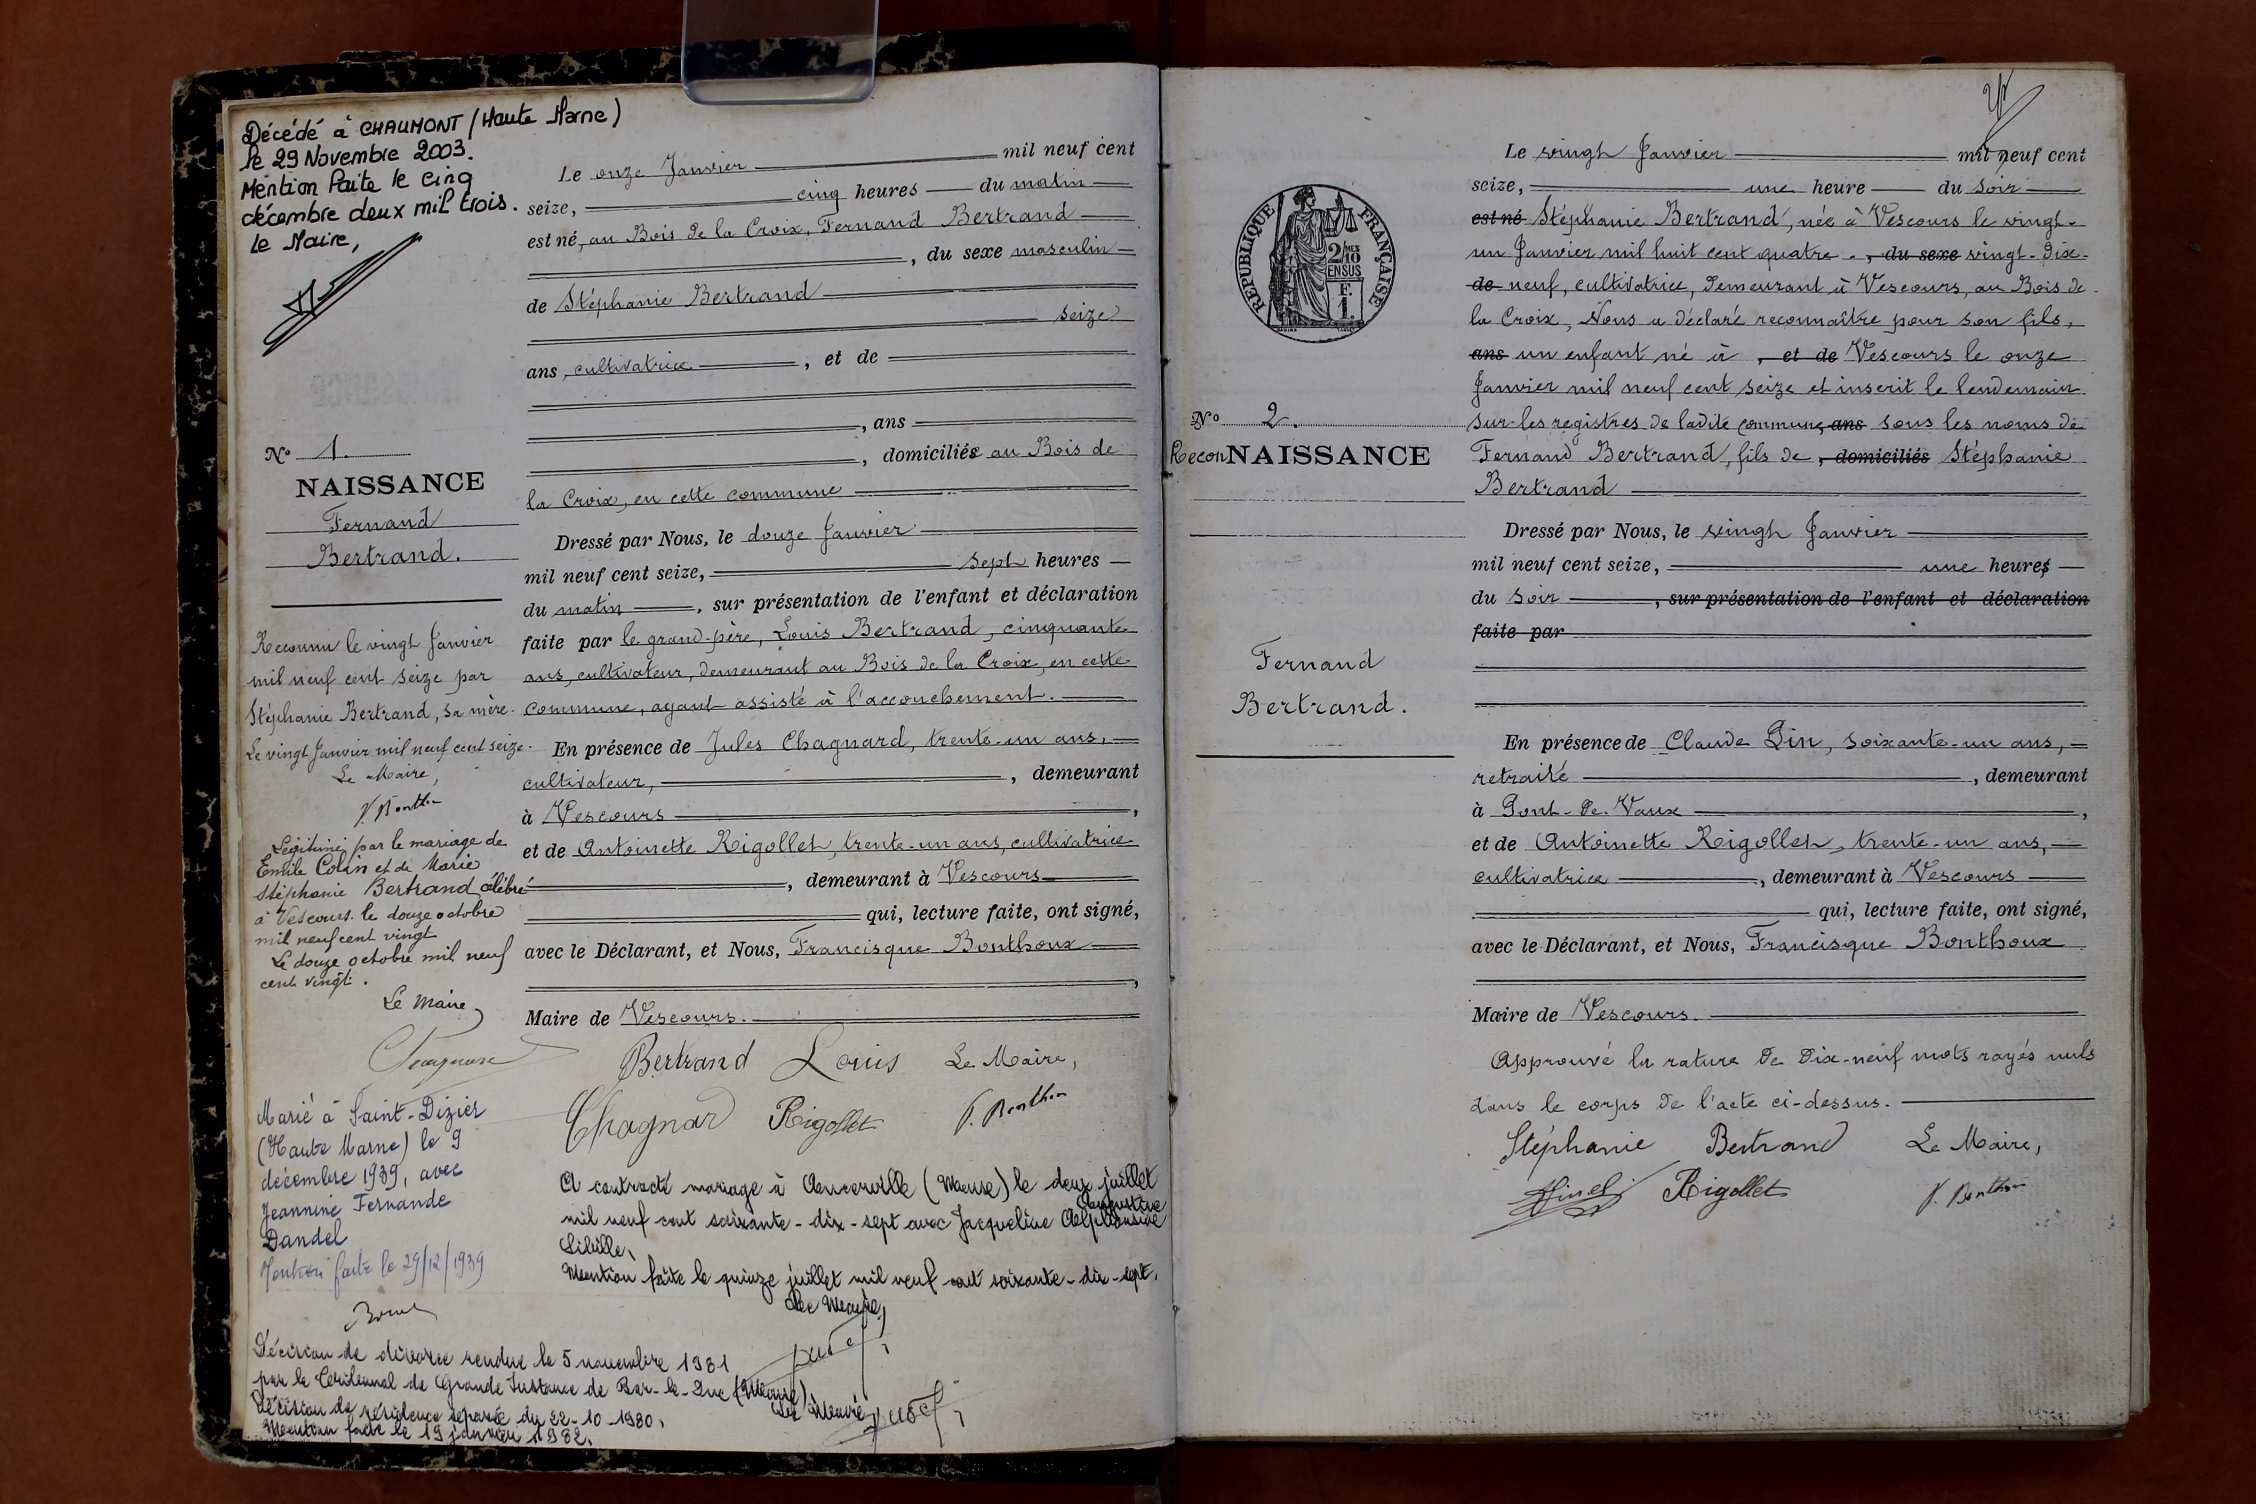 Décédé à CHAUMONT (Haute Marne)
le 29 Novembre 2003.
Mention faite le cinq
décembre deux mil trois.
Le Maire,
N° 1.
NAISSANCE
Fernand
Bertrand.
Reconnu le vingt Janvier
mil neuf cent seize par
Stéphanie Bertrand, sa mère.
Le vingt Janvier mil neuf cent seize.
Le Maire,
F. Bonthou
Légitimé par le mariage de
Emile Colin et de Marie
Stéphanie Bertrand célébré
à Vescours le douze octobre
mil neuf cent vingt
Le douze octobre mil neuf
cent vingt.
Le Maire
Marié à Saint-Dizier
(Haute Marne) le 9
décembre 1939, avec
Jeannine Fernande
Dandel
Mention faite le 29/12/1939
Le onze Janvier mil neuf cent
seize, cinq heures du matin
est né, au Bois de la Croix, Fernand Bertrand
, du sexe masculin
de Stéphanie Bertrand
seize
ans, cultivatrice, et de
, ans
, domiciliés au Bois de
la Croix, en cette commune
Dressé par Nous, le douze Janvier
mil neuf cent seize, sept heures
du matin, sur présentation de l'enfant et déclaration
faite par le grand-père, Louis Bertrand, cinquante
ans, cultivateur, demeurant au Bois de la Croix, en cette
commune, ayant assisté à l'accouchement.
En présence de Jules Chagnard, trente-un ans,
cultivateur, , demeurant
à Vescours,
et de Antoinette Rigollet, trente-un ans, cultivatrice
, demeurant à Vescours
qui, lecture faite, ont signé,
avec le Déclarant, et Nous, Francisque Bonthoux
,
Maire de Vescours.
Bertrand Louis Le Maire,
Chagnard Rigollet F. Bonthou
A contracté mariage à Ancerville (Meuse) le deux juillet
Augustine
mil neuf cent soixante-dix-sept avec Jacqueline Alphonsine
Sibille.
Mention faite le quinze juillet mil neuf cent soixante-dix-sept.
Le Maire,
Décision de divorce rendue le 5 novembre 1981
par le Tribunal de Grande Instance de Bar-le-Duc (Meuse)
Décision de résidence séparée du 22-10-1980.
Le Maire
Mention faite le 19 janvier 1982.
RÉPUBLIQUE FRANÇAISE
2/10
MES
EN SUS
F.
1.
N° 2.
ReconNAISSANCE
Fernand
Bertrand.
Le vingt Janvier mil neuf cent
seize, une heure du soir
est né Stéphanie Bertrand, née à Vescours le vingt-
un Janvier mil huit cent quatre-, du sexe vingt-dix-
de neuf, cultivatrice, demeurant à Vescours, au Bois de
la Croix, Nous a déclaré reconnaître pour son fils,
ans un enfant né à , et de Vescours le onze
Janvier mil neuf cent seize et inscrit le lendemain
sur les registres de ladite commune, ans sous les noms de
Fernand Bertrand, fils de , domiciliés Stéphanie
Bertrand
Dressé par Nous, le vingt Janvier
mil neuf cent seize, une heures
du soir, sur présentation de l'enfant et déclaration
faite par
En présence de Claude Pin, soixante-un ans,
retraité, demeurant
à Pont-de-Vaux,
et de Antoinette Rigollet, trente-un ans,
cultivatrice, demeurant à Vescours
qui, lecture faite, ont signé,
avec le Déclarant, et Nous, Francisque Bonthoux
Maire de Vescours.
Approuvé la rature de dix-neuf mots rayés nuls
dans le corps de l'acte ci-dessus.
Stéphanie Bertrand Le Maire,
Rigollet F. Bonthou